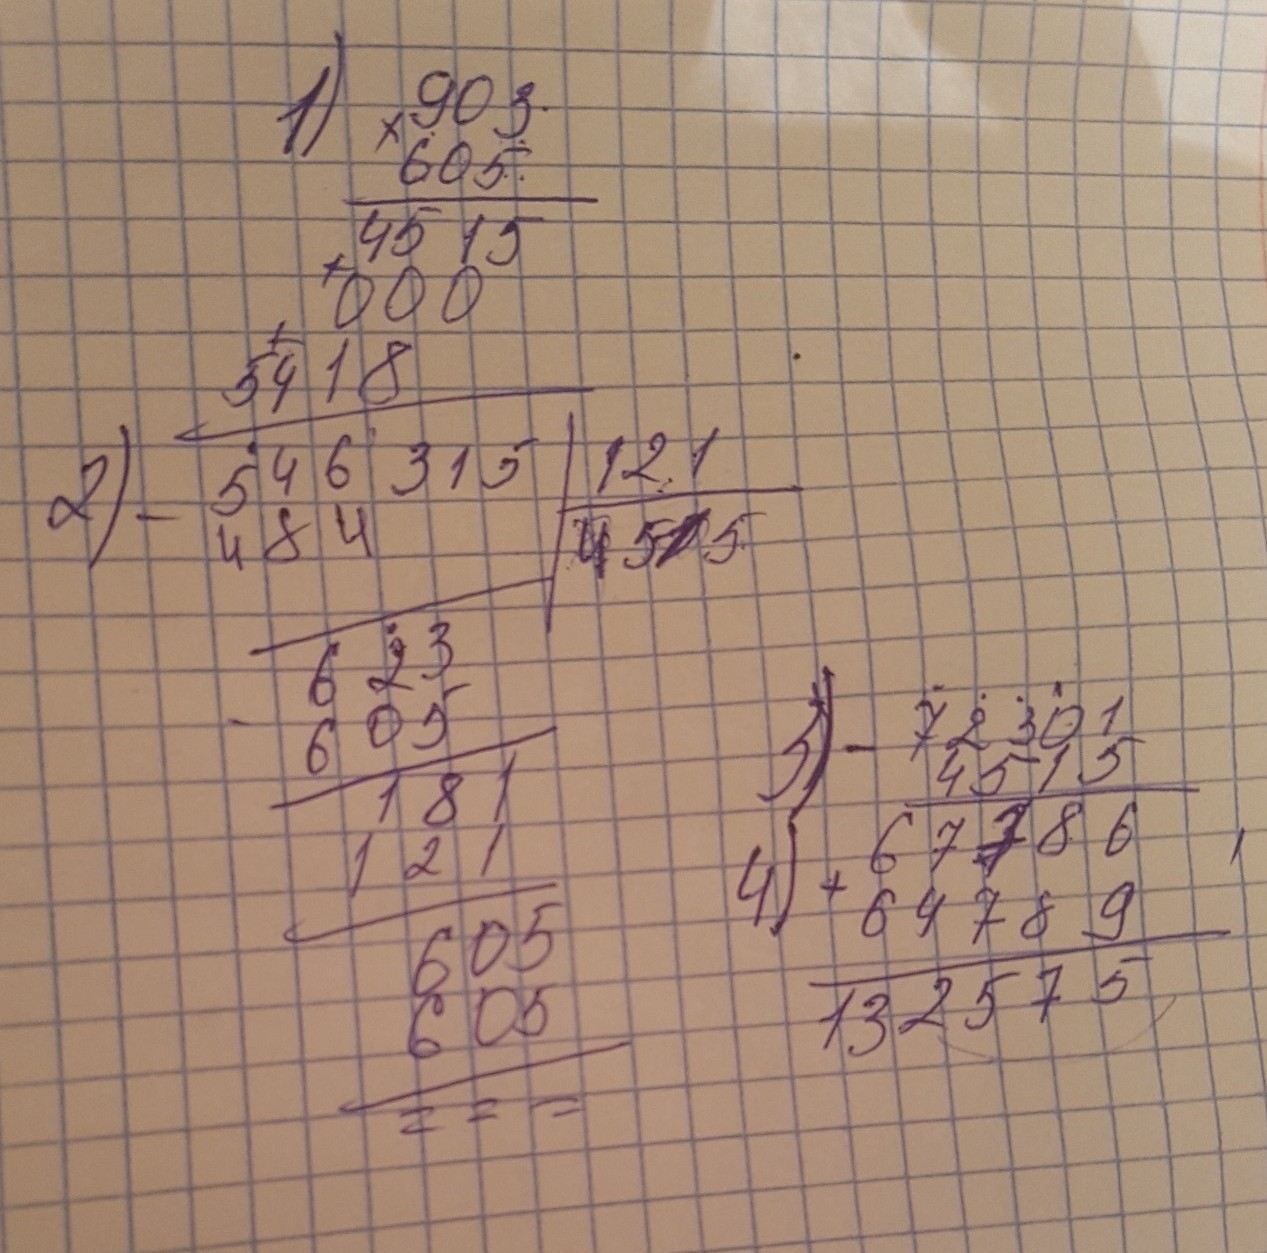 1) 903
× 605
4515
+ 000
+ 5418
2) - 546315 | 121
484 | 4515
623
- 605
181
121
605
605
= = =
3) - 72301
4515
4) + 67786
64789
132575